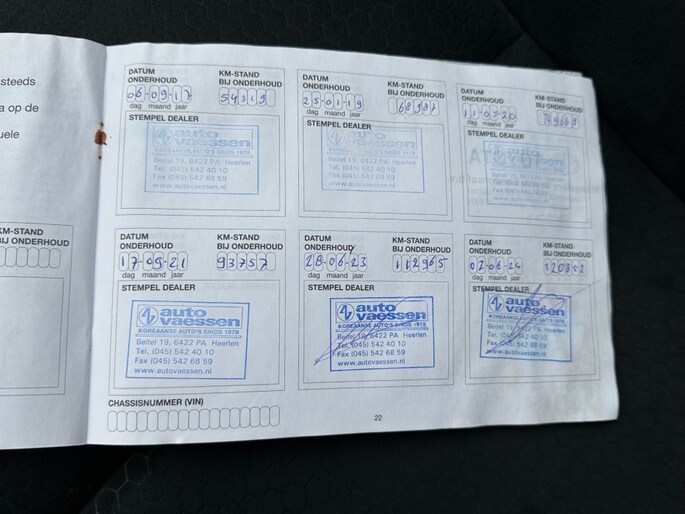 steeds
a op de
uele
KM-STAND
BIJ ONDERHOUD
DATUM
ONDERHOUD
KM-STAND
BIJ ONDERHOUD
06-09-17
54319
dag maand jaar
STEMPEL DEALER
auto
vaessen
KOREAANSE AUTO'S SINDS 1978
Beitel 19, 6422 PA Heerlen
Tel. (045) 542 40 10
Fax (045) 542 68 59
www.autovaessen.nl
DATUM
ONDERHOUD
KM-STAND
BIJ ONDERHOUD
25-01-19
dag maand jaar
STEMPEL DEALER
auto
vaessen
KOREAANSE AUTO'S SINDS 1978
Beitel 19, 6422 PA Heerlen
Tel. (045) 542 40 10
Fax (045) 542 68 59
www.autovaessen.nl
DATUM
ONDERHOUD
KM-STAND
BIJ ONDERHOUD
dag maand jaar
STEMPEL DEALER
DATUM
ONDERHOUD
KM-STAND
BIJ ONDERHOUD
17-09-21
93757
dag maand jaar
STEMPEL DEALER
auto
vaessen
KOREAANSE AUTO'S SINDS 1978
Beitel 19, 6422 PA Heerlen
Tel. (045) 542 40 10
Fax (045) 542 68 59
www.autovaessen.nl
DATUM
ONDERHOUD
KM-STAND
BIJ ONDERHOUD
28-06-23
112965
dag maand jaar
STEMPEL DEALER
auto
vaessen
KOREAANSE AUTO'S SINDS 1978
Beitel 19, 6422 PA Heerlen
Tel. (045) 542 40 10
Fax (045) 542 68 59
www.autovaessen.nl
DATUM
ONDERHOUD
KM-STAND
BIJ ONDERHOUD
02-06-24
dag maand jaar
STEMPEL DEALER
auto
vaessen
KOREAANSE AUTO'S SINDS 1978
Beitel 19, 6422 PA Heerlen
Tel. (045) 542 40 10
Fax (045) 542 68 59
www.autovaessen.nl
CHASSISNUMMER (VIN)
22